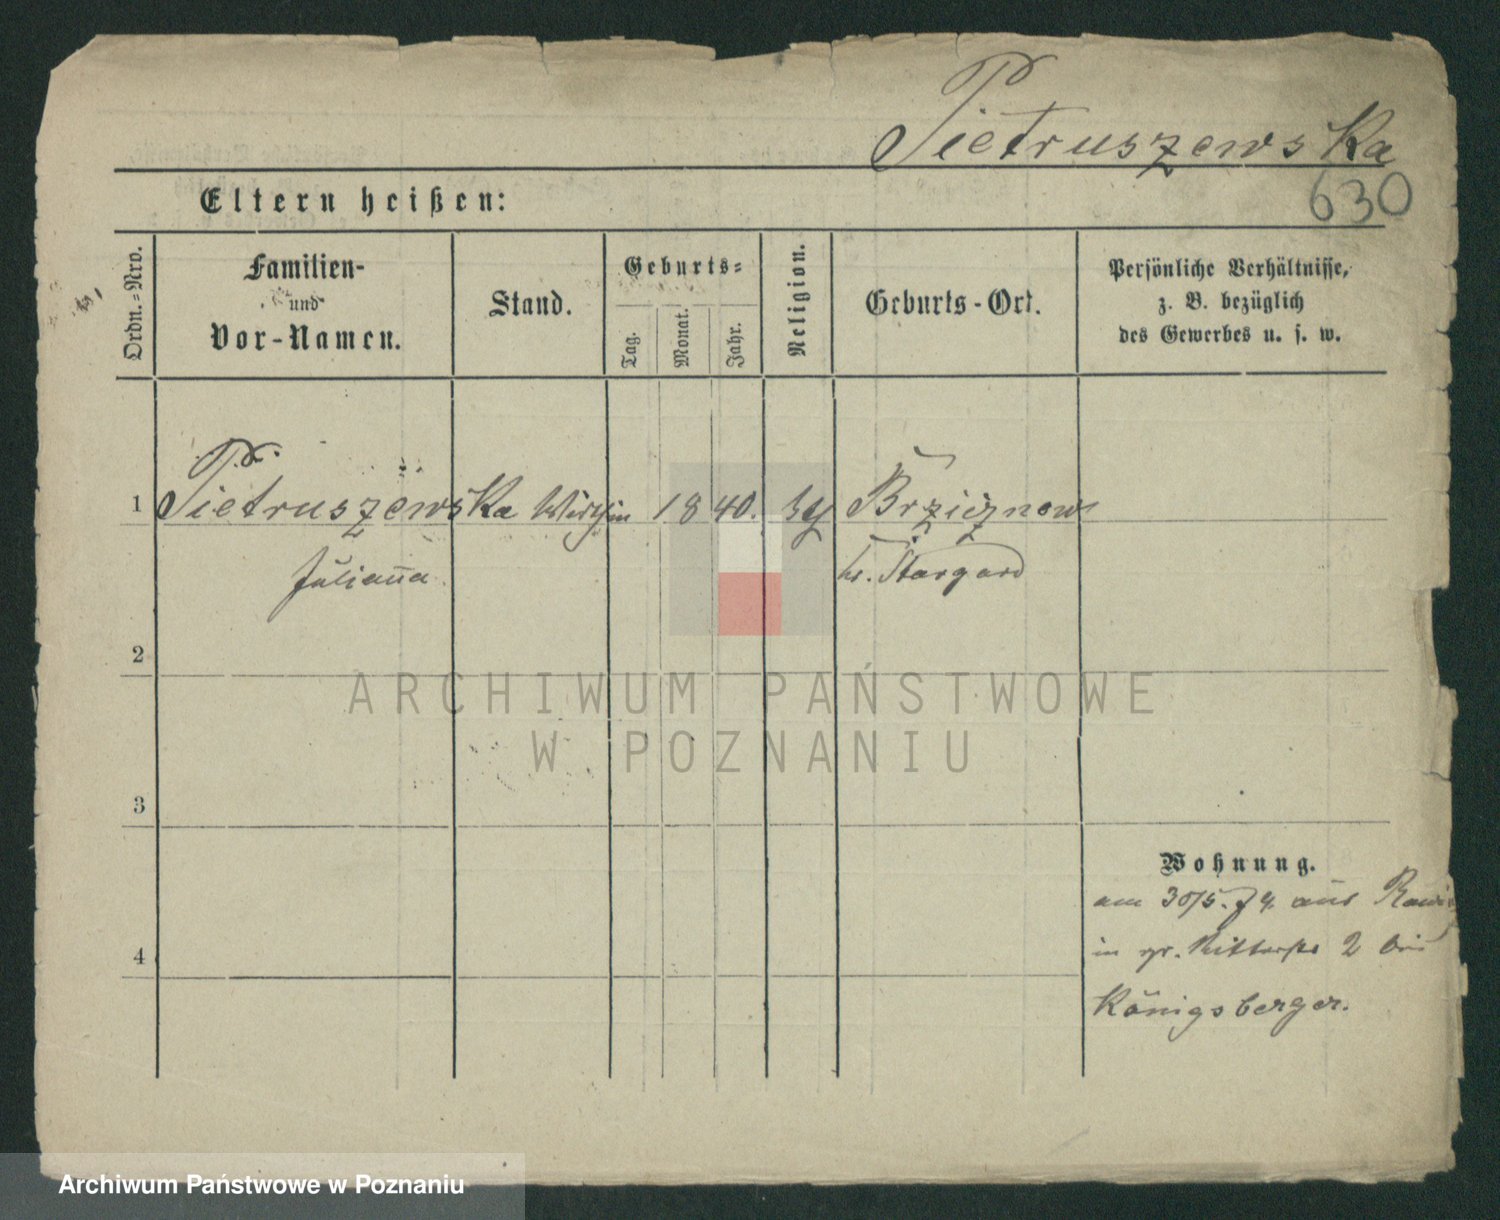 Pietruszewska
630
Eltern heißen:
Ordn.=Nro.
Familien-
und
Vor-Namen.
Stand.
Geburts=
Tag.
Monat.
Jahr.
Religion.
Geburts-Ort.
Persönliche Verhältnisse,
z. B. bezüglich
des Gewerbes u. s. w.
1 Pietruszewska 1840. Brzicznow
Juliana Kr. Stargard
2
ARCHIWUM PAŃSTWOWE
W POZNANIU
3
Wohnung.
am 30/5. 74. aus
4
in gr. Ritterstr 2 bei
Königsberger.
Archiwum Państwowe w Poznaniu